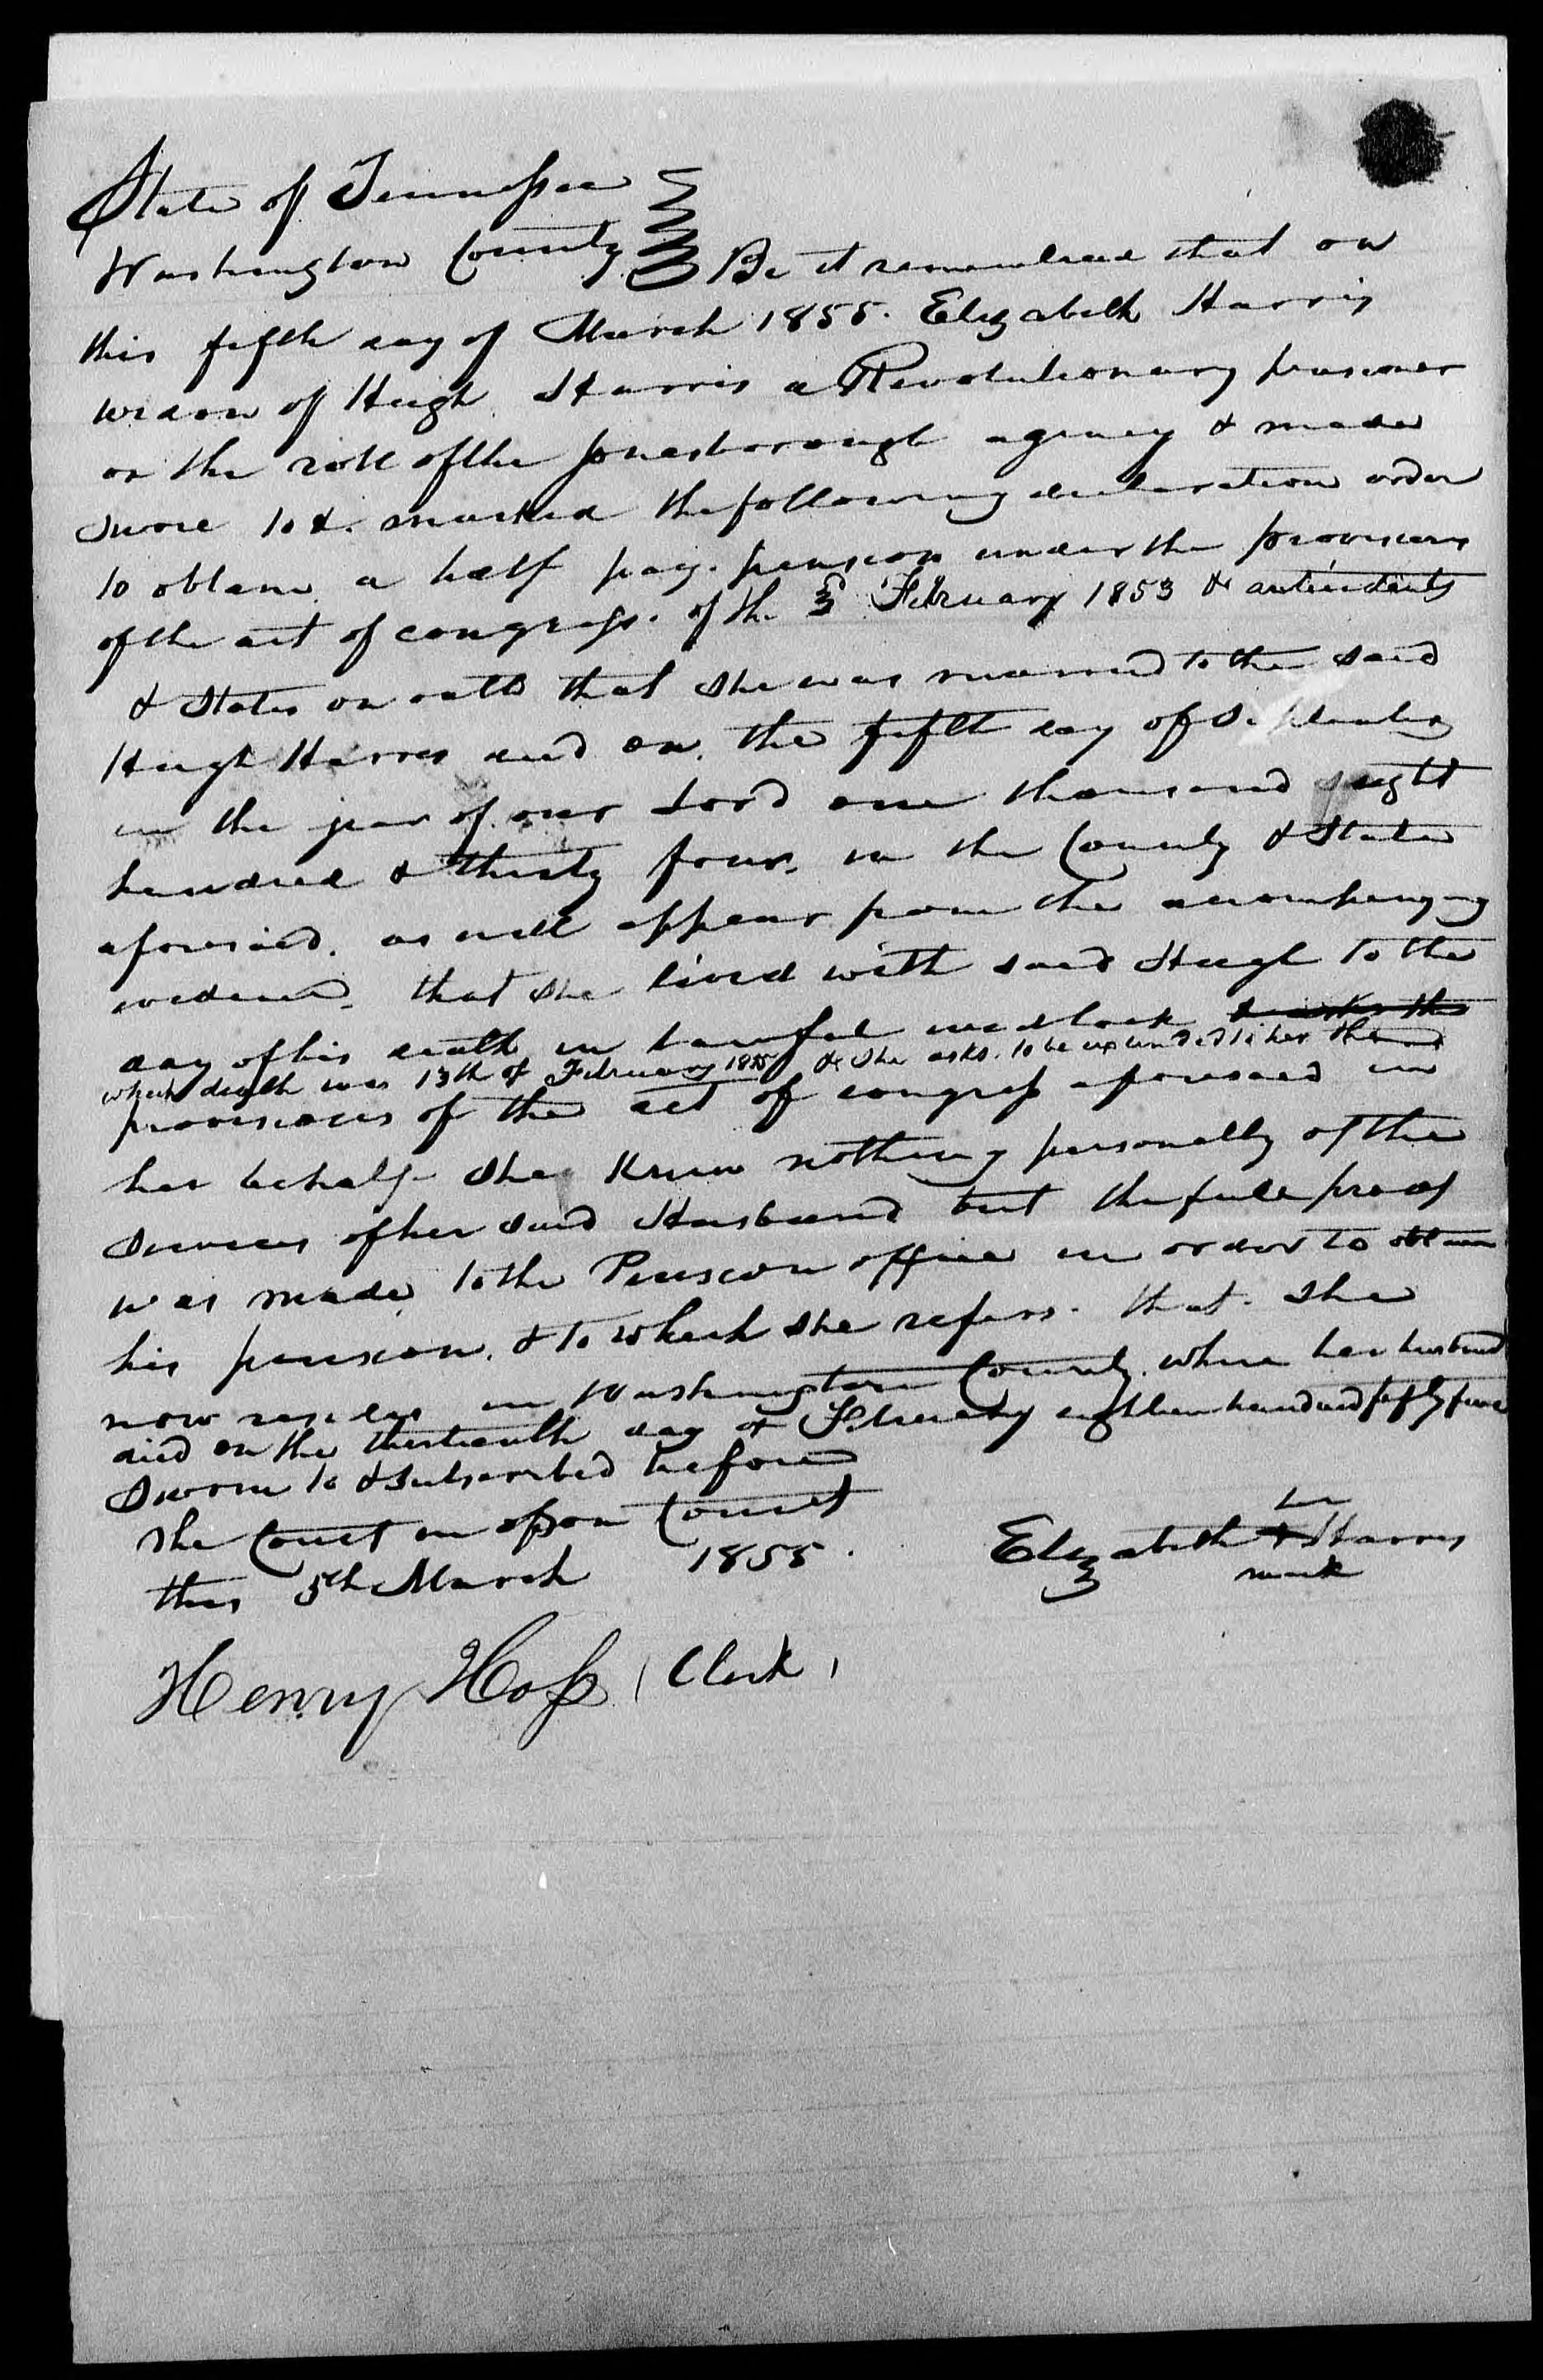 State of Tennessee
Washington County Be it remembered that on
this fifth day of March 1855. Elizabeth Harris
widow of Hugh Harris a Revolutionary pensioner
on the roll of the Jonesborough agency & made
swore to & marked the following declaration order
to obtain a half pay pension under the provisions
of the act of congress. of the 3 February 1853 & antecedents
& States on oath that she was married to the said
Hugh Harris and on the fifth day of September
in the year of our Lord one thousand eight
hundred & thirty four, in the County & State
aforesaid. as will appear from the accompanying
evidence, that she lived with said Hugh to the
day of his death in lawful wedlock & asks the
which death was 13th of February 1855 & she asks. to be extended to her the
provisions of the act of congress aforesaid in
her behalf She knew nothing personally of the
services of her said Husband but the full proof
was made to the Pension office in order to obtain
his pension, & to which she refers. that she
now resides in Washington County, where her husband
died on the thirteenth day of February eighteen hundred fifty five
Sworn to & subscribed before
the Court in open Court
this 5th March 1855.
her
Elizabeth + Harris
mark
Henry Hoss (Clerk)